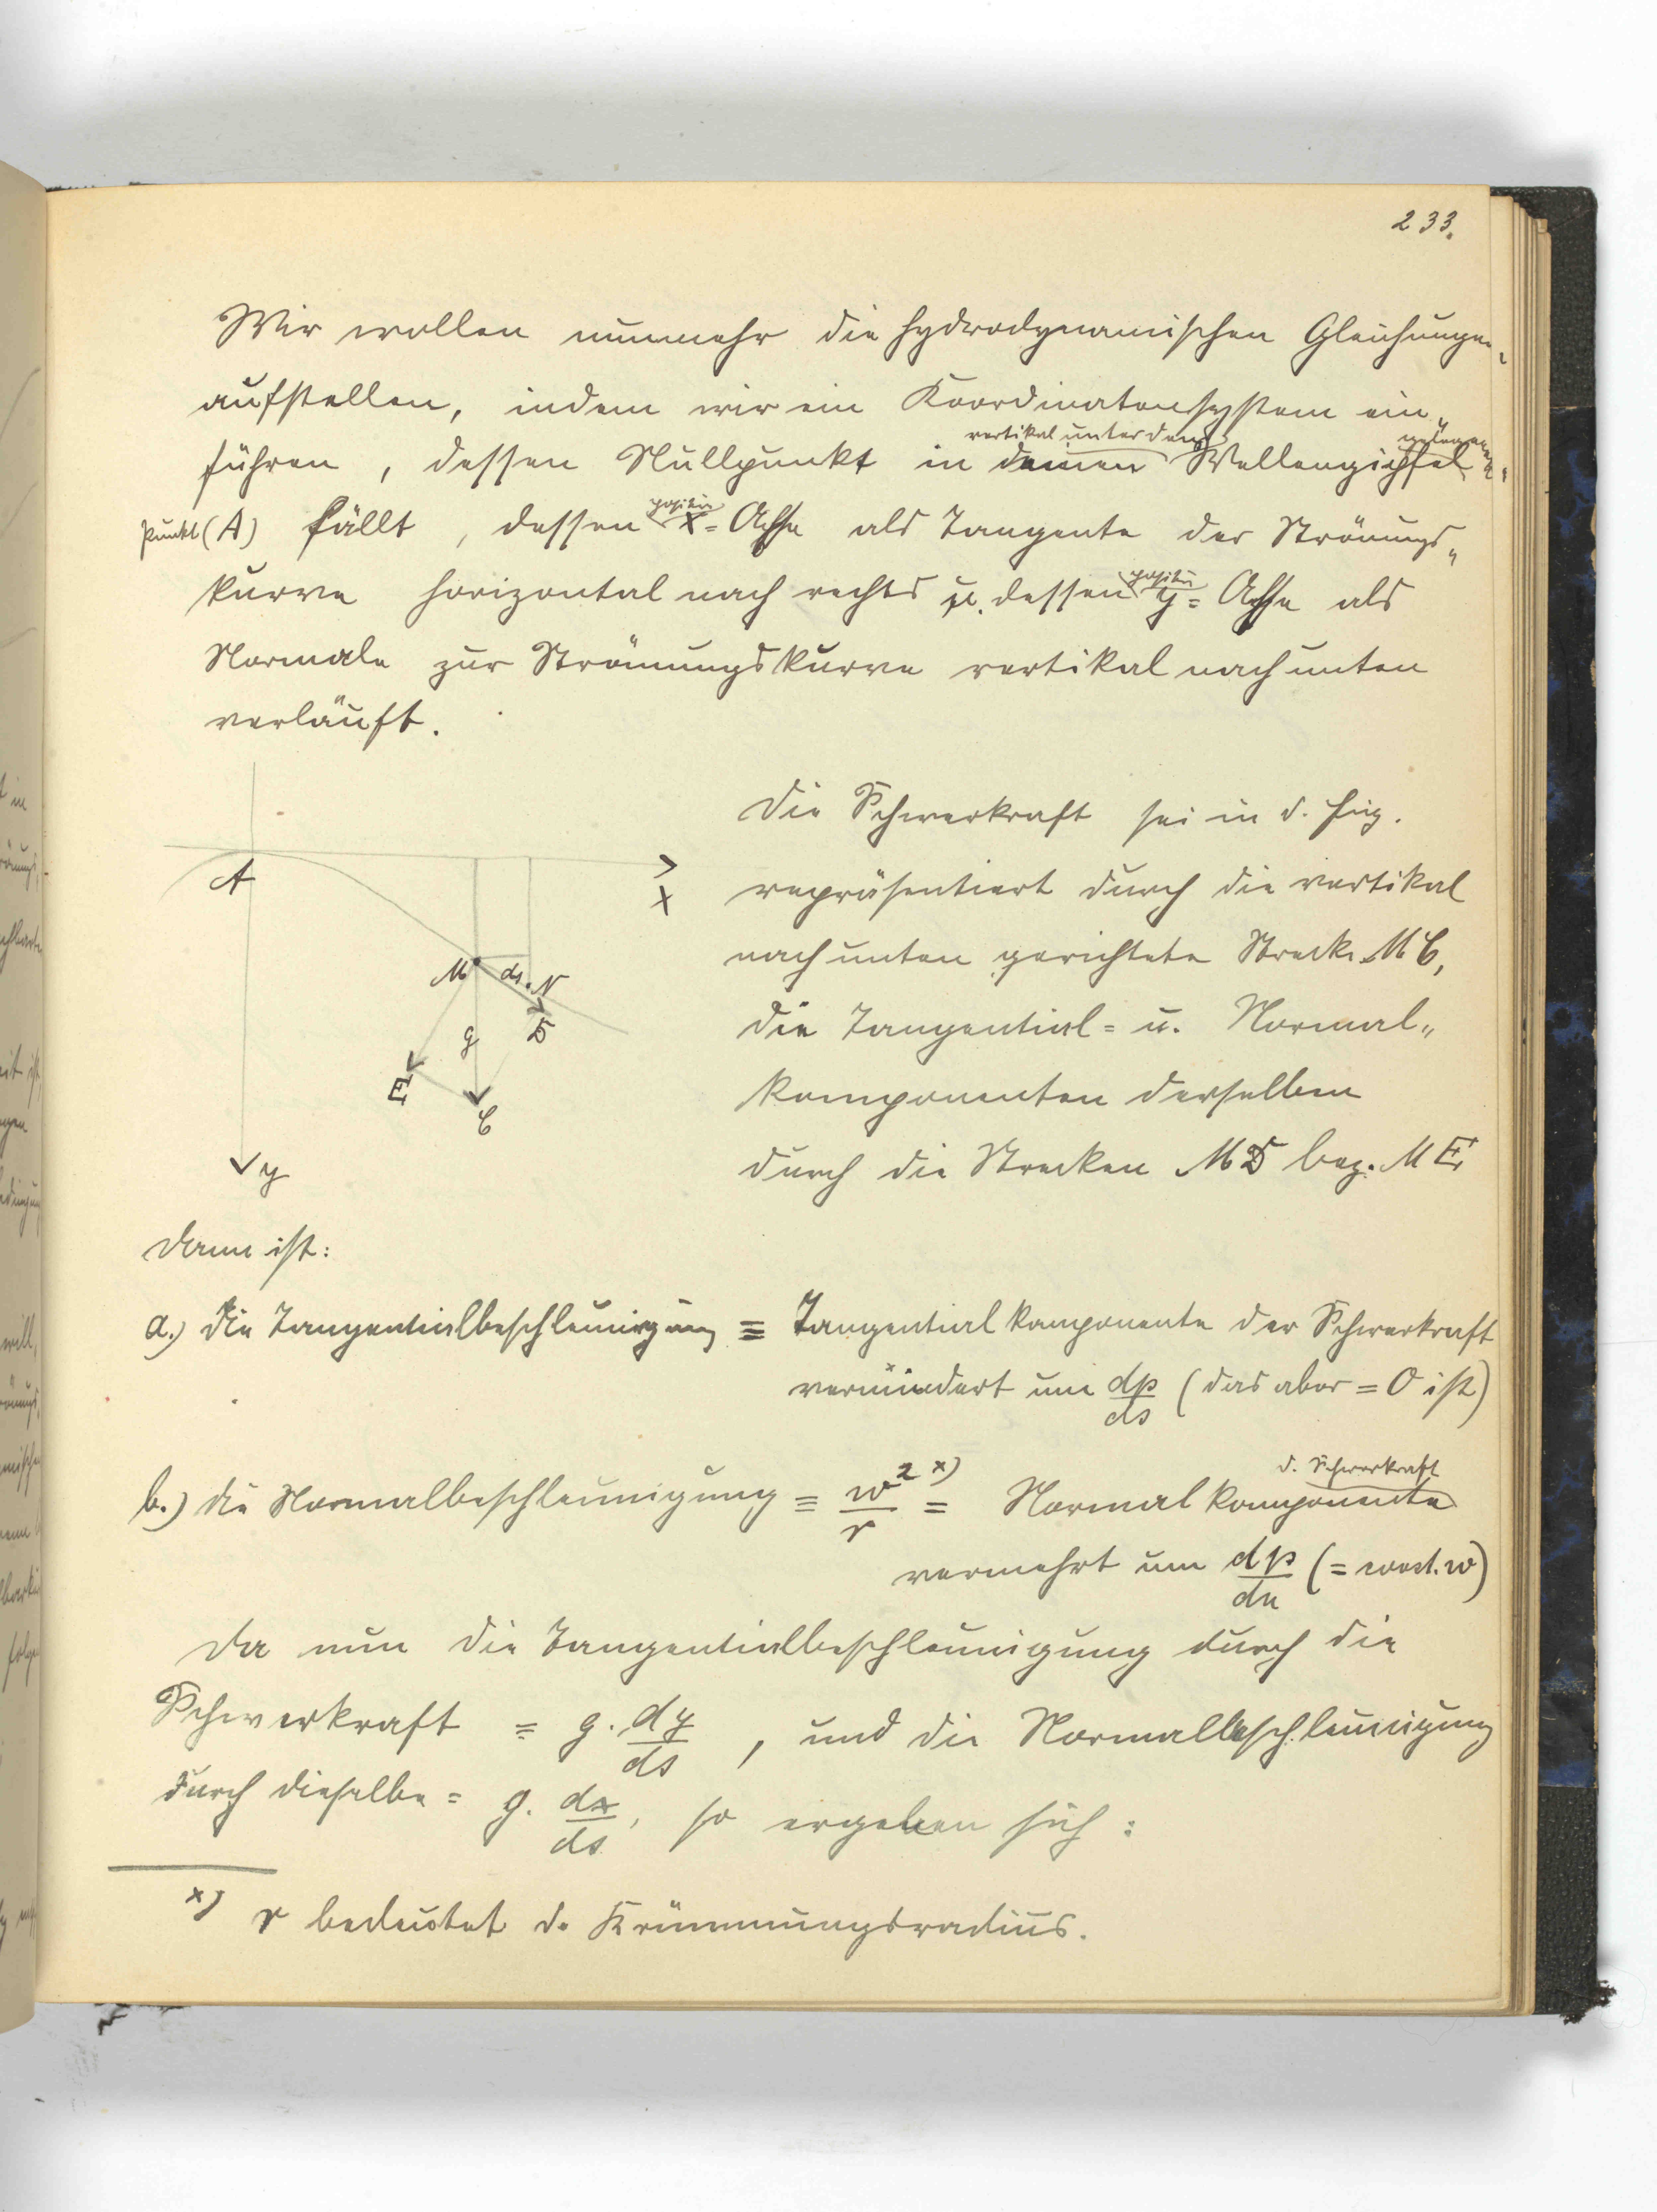 233.
Wir wollen nunmehr die hydrodynamischen Gleichungen
aufstellen, indem wir ein Koordinatensystem ein„
vertikal unter dem gelegenen
führen, dessen Nullpunkt in den Wellengipfel„
punkt (A) fällt, dessen positiv x=Achse als Tangente der Strömungs„
kurve horizontal nach rechts u. dessen positiv y=Achse als
Normale zur Strömungskurve vertikal nach unten
verläuft.
Die Schwerkraft sei in d. Fig.
repräsentiert durch die vertikal
nach unten gerichtete Strecke MC,
die Tangential= u. Normal„
komponenten derselben
durch die Strecken MD bez. ME
A
x
M ds. N
D
g
E
C
y
Dann ist:
a.) die Tangentialbeschleunigung = Tangentialkomponente der Schwerkraft
vermindert um dp/ds (das aber = 0 ist)
b.) die Normalbeschleunigung = w²/r x) = Normalkomponente d. Schwerkraft
vermehrt um dp/dn (= const. w)
Da nun die Tangentialbeschleunigung durch die
Schwerkraft = g. dy/ds, und die Normalbeschleunigung
durch dieselbe = g. dx/ds, so ergeben sich:
x) r bedeutet d. Krümmungsradius.